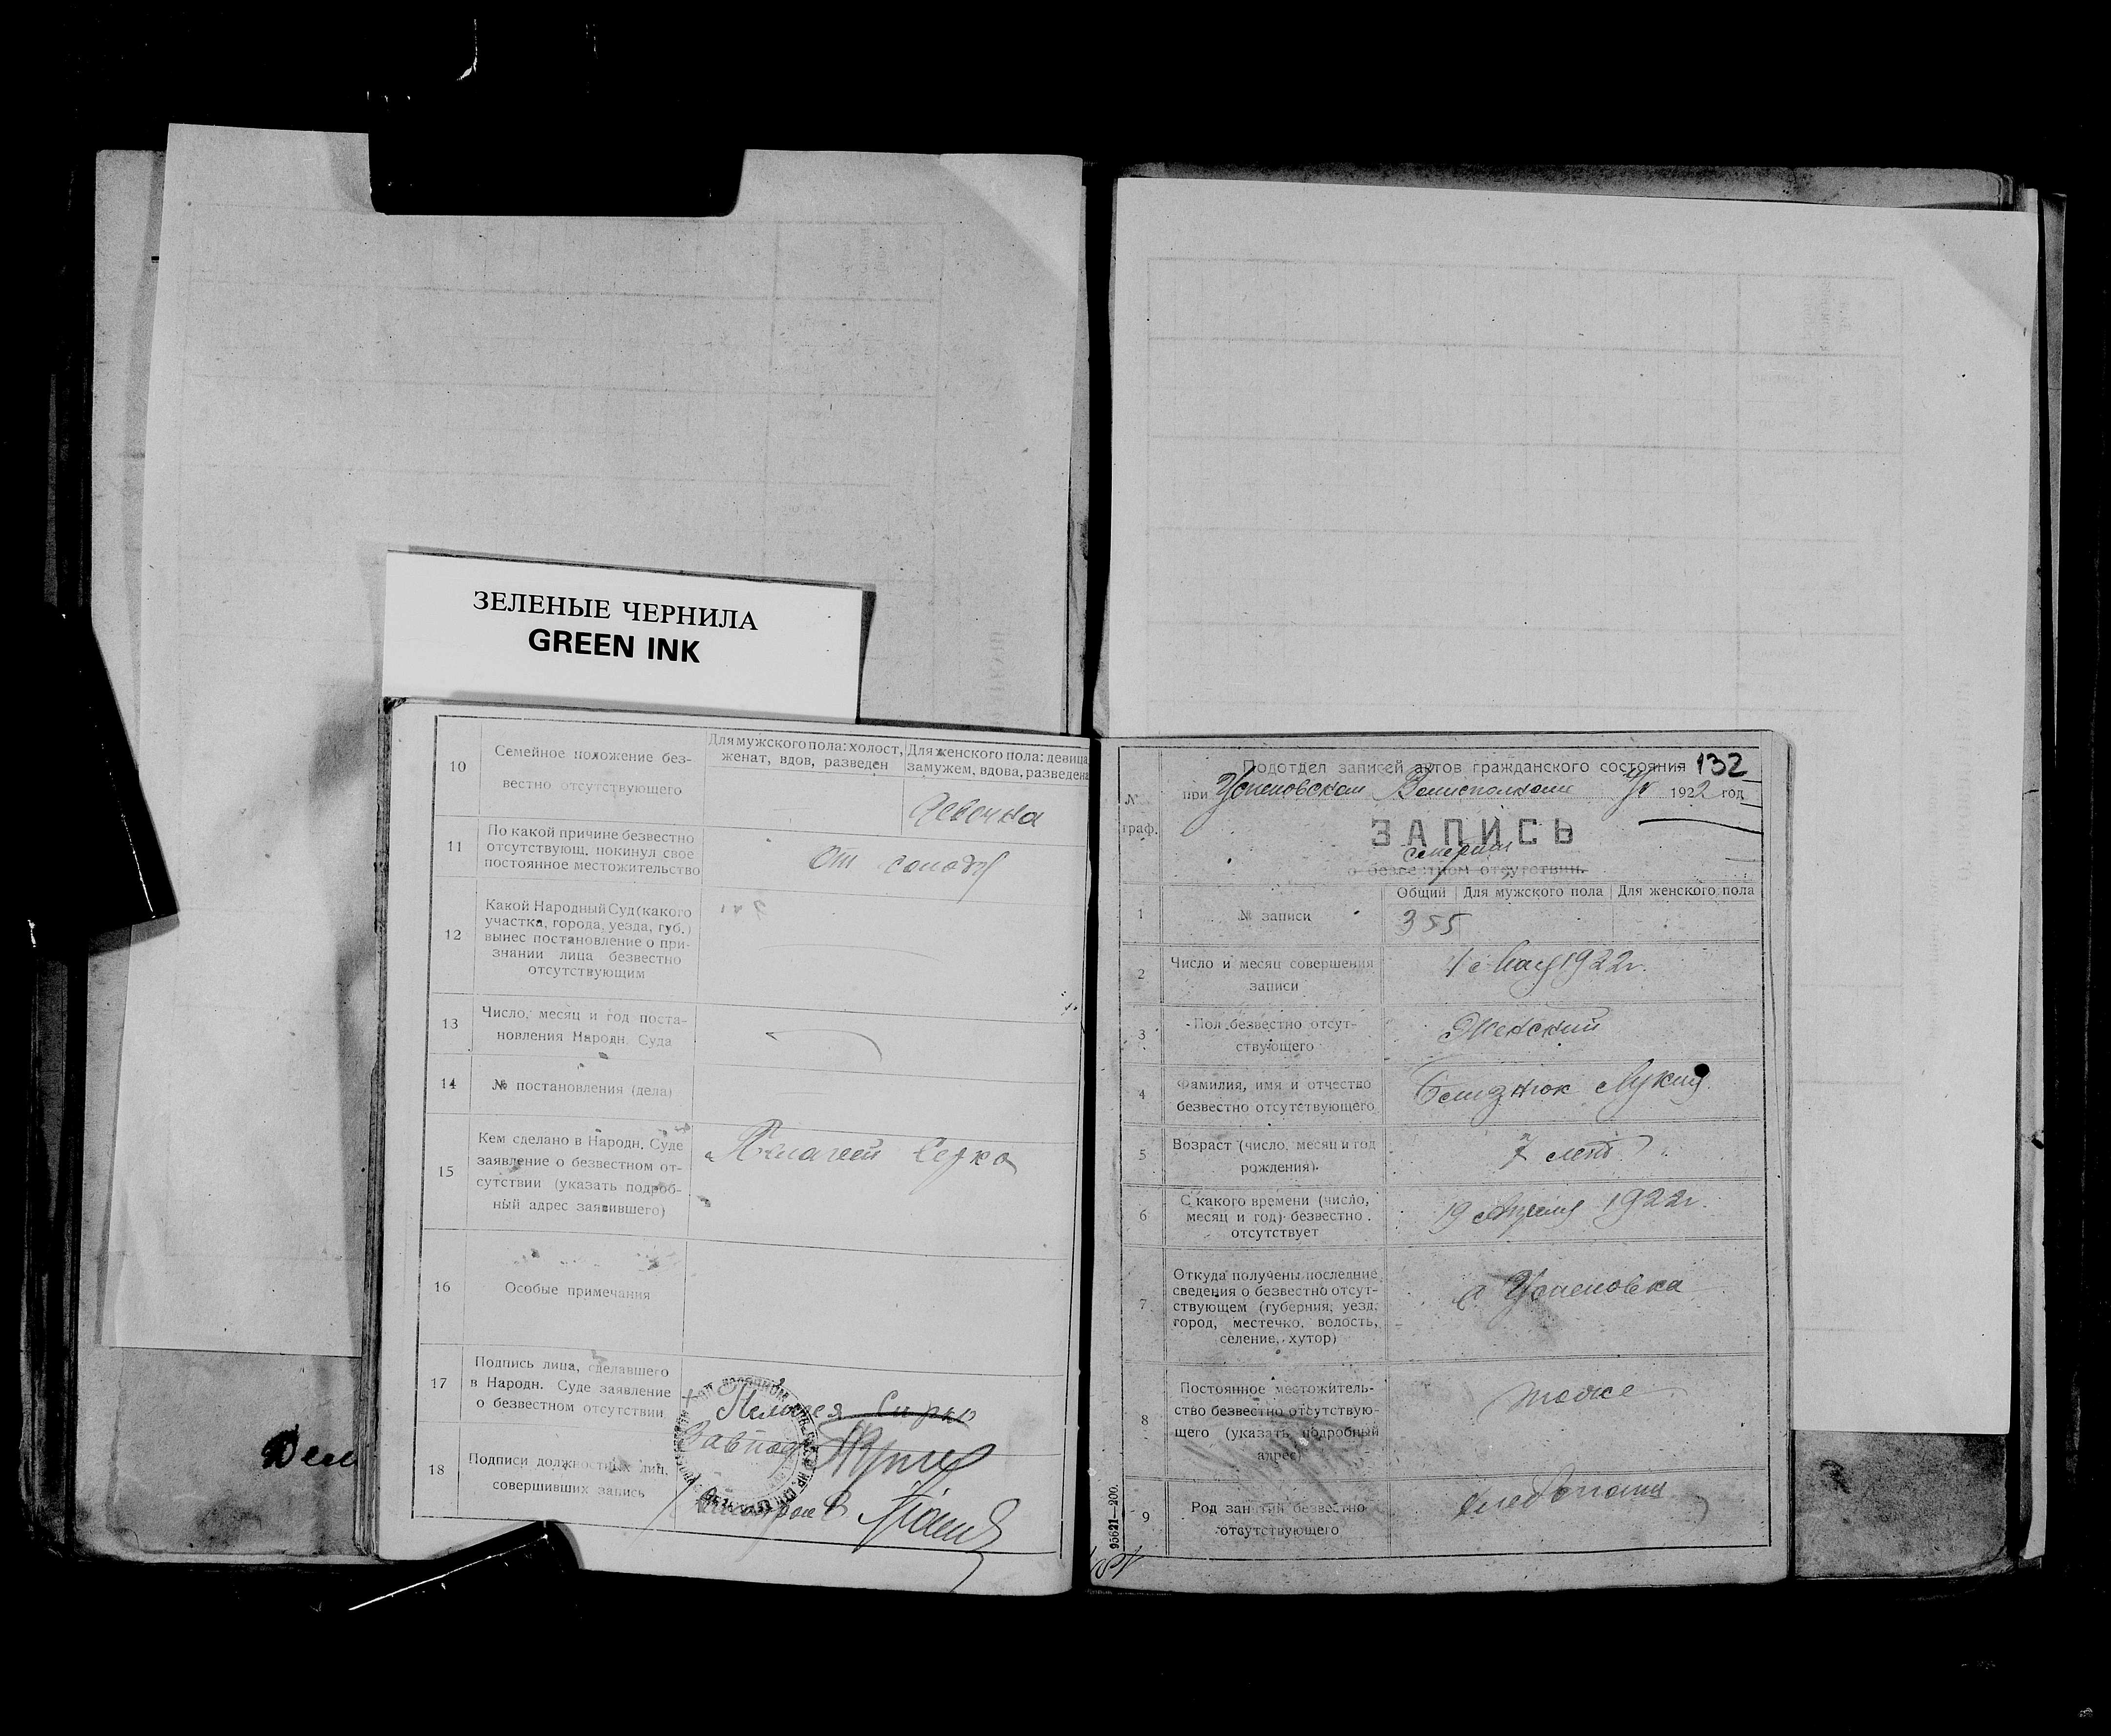 ЗЕЛЕНЫЕ ЧЕРНИЛА
GREEN INK
10
Семейное положение без-
вестно отсутствующего
Для мужского пола: холост,
женат, вдов, разведен
Для женского пола: девица
замужем, вдова, разведена
девочка
11
По какой причине безвестно
отсутствующ. покинул свое
постоянное местожительство
от голода
12
Какой Народный Суд (какого
участка, города, уезда, губ.)
вынес постановление о при-
знании лица безвестно
отсутствующим
13
Число, месяц и год поста-
новления Народн. Суда
14
№ постановления (дела)
15
Кем сделано в Народн. Суде
заявление о безвестном от-
сутствии (указать подроб-
ный адрес заявившего)
16
Особые примечания
17
Подпись лица, сделавшего
в Народн. Суде заявление
о безвестном отсутствии
18
Подписи должностных лиц,
совершивших запись
Завпод
132
Подотдел записей актов гражданского состояния
при Успеновском Волисполкоме 1922 год
№
граф.
ЗАПИСЬ
смерти
о безвестном отсутствии.
Общий Для мужского пола Для женского пола
1
№ записи
355
2
Число и месяц совершения
записи
1922 г.
3
Пол безвестно отсут-
ствующего
Женский
4
Фамилия, имя и отчество
безвестно отсутствующего
5
Возраст (число, месяц и год
рождения)
7 лет
6
С какого времени (число,
месяц и год) безвестно
отсутствует
19 Апреля 1922 г.
7
Откуда получены последние
сведения о безвестно отсут-
ствующем (губерния, уезд,
город, местечко, волость,
селение, хутор)
с Успеновка
8
Постоянное местожитель-
ство безвестно отсутствую-
щего (указать подробный
адрес)
тоже
9
Род занятий безвестно
отсутствующего
95621—200.